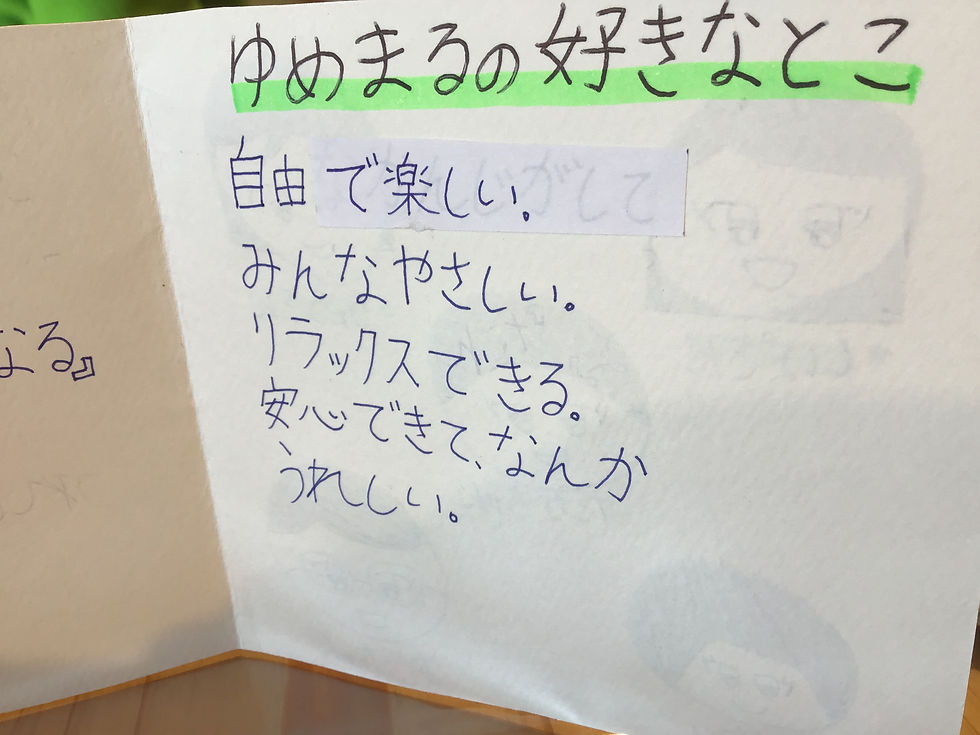 ゆめまるの好きなとこ
自由で楽しい。
みんなやさしい。
リラックスできる。
安心できて、なんか
うれしい。
なる』